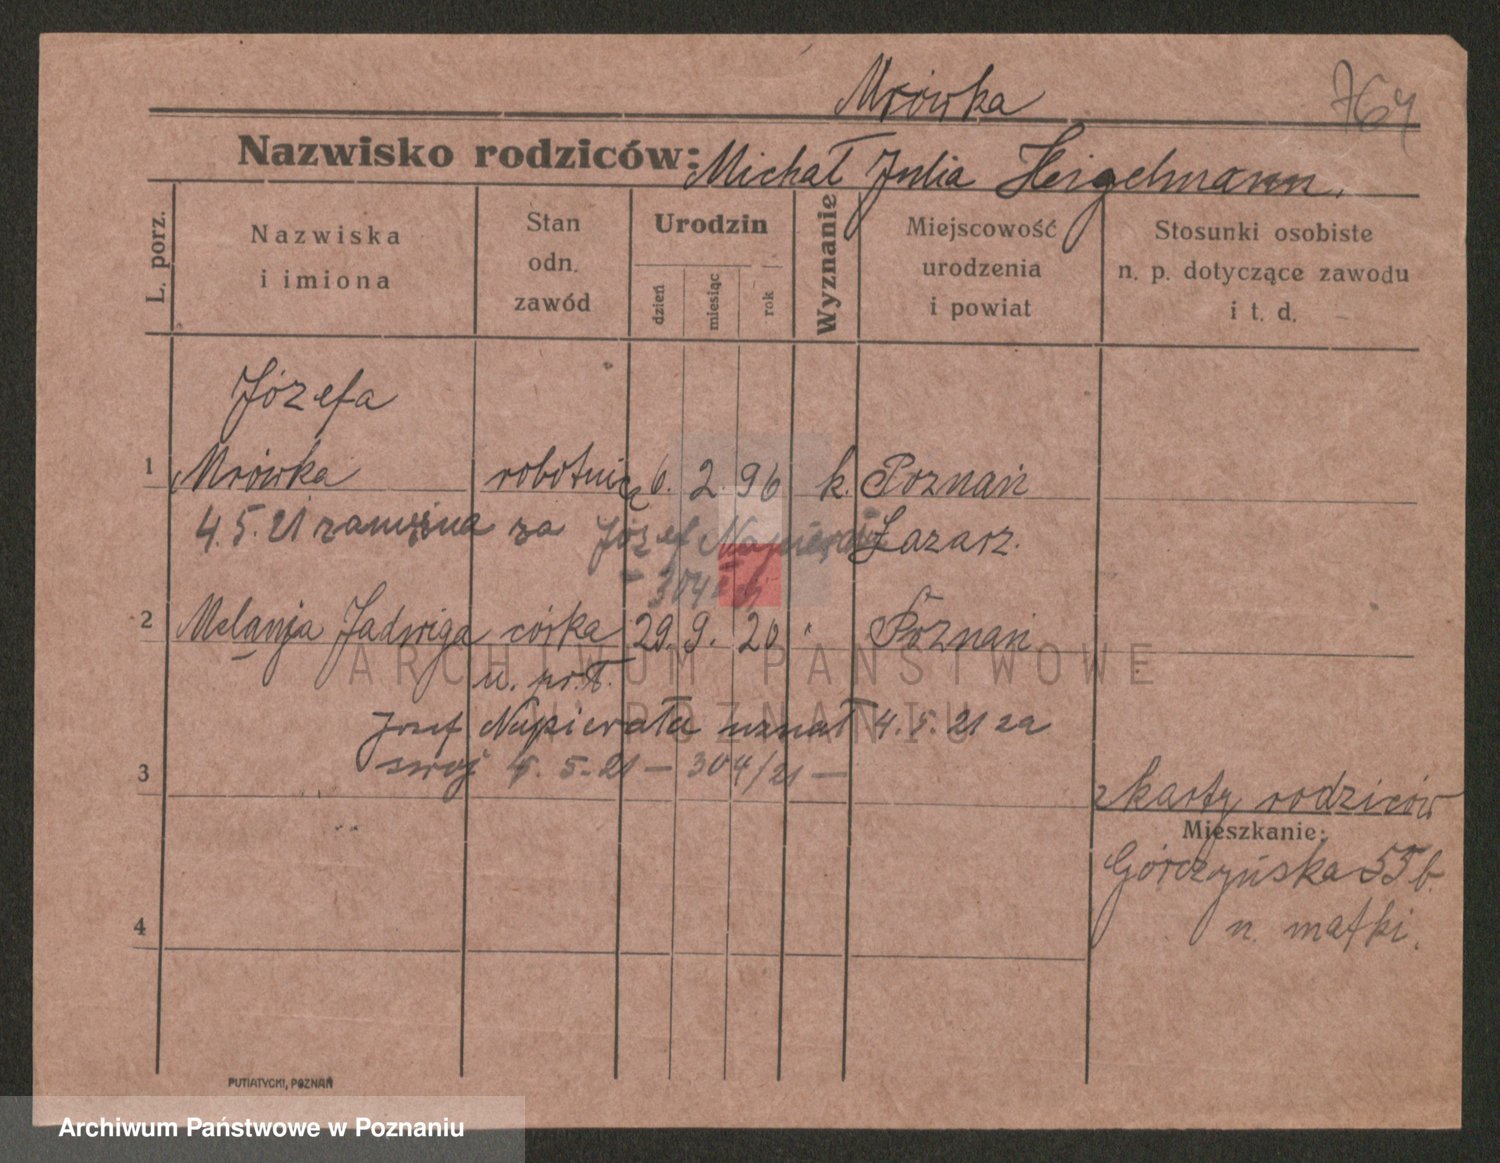 Mrówka
764
Nazwisko rodziców: Michał Julia Heigelmann.
L. porz.
Nazwiska
i imiona
Stan
odn.
zawód
Urodzin
dzień
miesiąc
rok
Wyznanie
Miejscowość
urodzenia
i powiat
Stosunki osobiste
n. p. dotyczące zawodu
i t. d.
Józefa
1 Mrówka robotnica 6. 2. 96 k. Poznań
4.5.21 zamężna za Józef Napierała Łazarz.
2 Melanja Jadwiga córka 29. 9. 20 " Poznań
Józef Napierała uznał 4.5.21 za
swoj 4.5.21 — 304/21 —
3
z karty rodziców
Mieszkanie:
Górczyńska 55 b.
4
u. matki.
PUTIATYCKI, POZNAŃ
ARCHIWUM PAŃSTWOWE
W POZNANIU
Archiwum Państwowe w Poznaniu